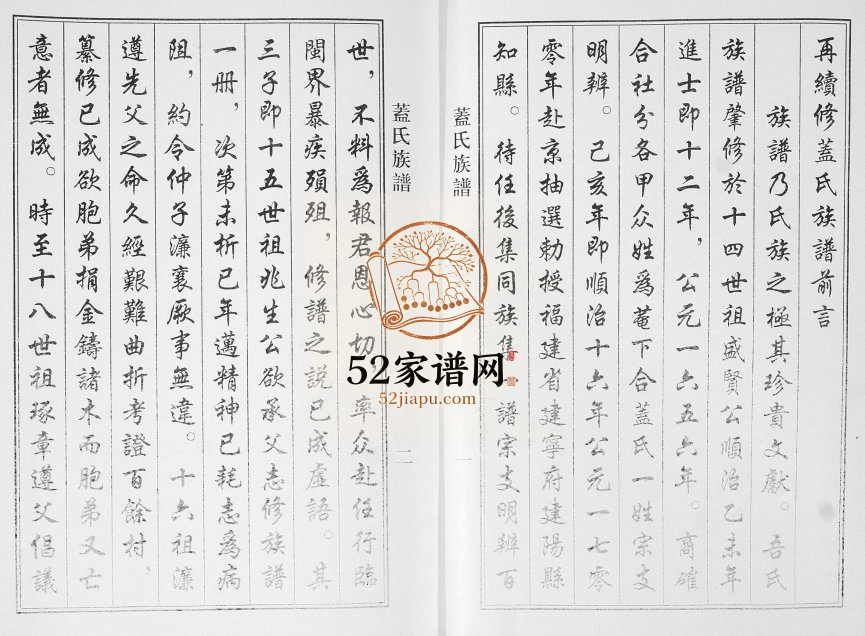 再續修蓋氏族譜前言
族譜乃氏族之極其珍貴文獻。吾氏
族譜肇修於十四世祖盛賢公順治乙未年
進士即十二年，公元一六五六年。商確
合社分各甲众姓爲菴下合蓋氏一姓宗支
明辨。己亥年即順治十六年公元一七零
零年赴京抽選勅授福建省建寧府建陽縣
知縣。待任後集同族集一譜宗支明辨百
蓋氏族譜
一
蓋氏族譜
二
世，不料爲報君恩心切，率众赴任行臨
閩界暴疾殞殂，修譜之説已成虛語。其
三子即十五世祖兆生公欲承父志修族譜
一冊，次第未析已年邁精神已耗志爲病
阻，約令仲子濂襄厥事無違。十六祖濂
遵先父之命久經艱難曲折考證百餘村，
纂修已成欲胞弟捐金鑄諸木而胞弟又亡
意者無成。時至十八世祖琢章遵父倡議
52家谱网
52jiapu.com